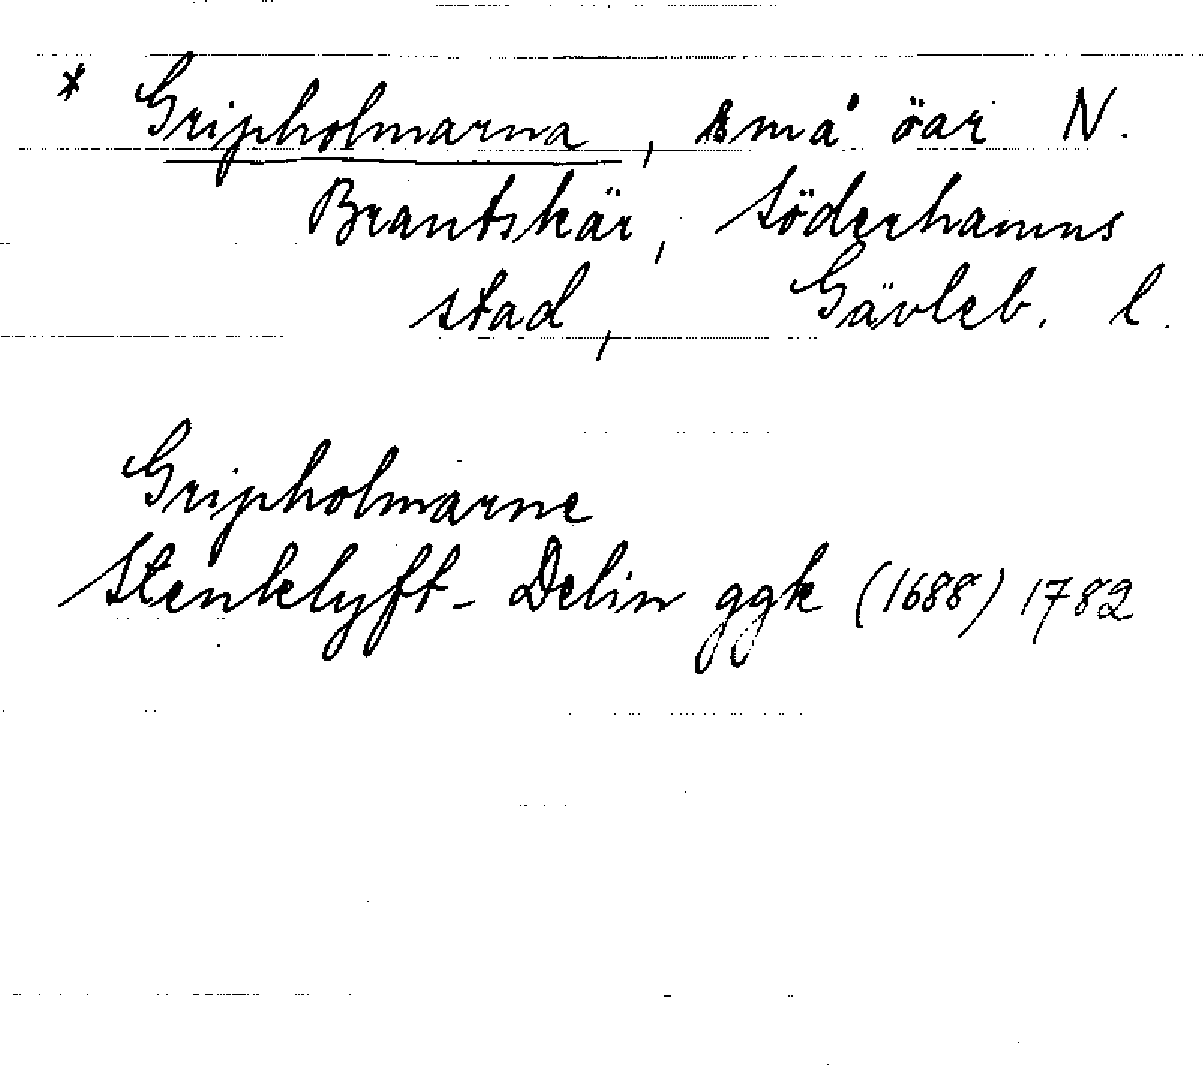 * Gripholmarna, små öar N.
Brantskär, Söderhamns
stad, Gävleb. l.
Gripholmarne
Stenklyft-Delin ggk (1688) 1782